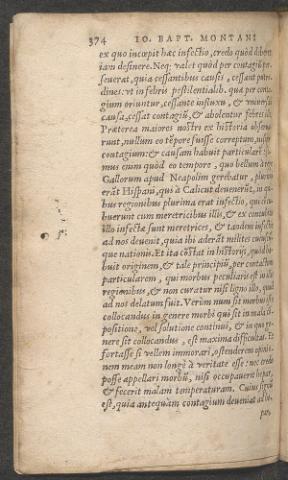 374 IO. BAPT. MONTANI
ex quo incœpit hæc infectio, credo quòd
iam desinere. Neq; valet quòd per contagiũ
seuerat, quia cessantibus causis, cessant
dines: vt in febris pestilentialib. quæ per con-
gium oriuntur, cessante influxu, & vniuersali
causa, cessat contagiũ, & abolentur febres illæ.
Præterea maiores nostri ex historia
runt, nullum eo tẽpore fuisse correptum, nisi per
contagium: & causam habuit particularẽ:
mus enim quòd eo tempore, quo bellum à rege
Gallorum apud Neapolim gerebatur,
erãt Hispani, qui à Calicut deuenerũt, in qui-
bus regionibus plurima erat infectio, qui
buerunt cum meretricibus illis, & ex concubitu
illo infectæ sunt meretrices, & tandem infectio
ad nos deuenit, quia ibi aderãt milites cuiuscũ-
que nationis. Et ita cõstat in historijs, quòd ha-
buit originem, & tale principiũ, per contactum
particularem, qui morbus peculiaris est in illis
regionibus, & non curatur nisi ligno illo, quod
ad nos delatum fuit. Verùm num sit morbus iste
collocandus in genere morbi qui sit in mala dis-
positione, vel solutione continui, & in quo ge-
nere sit collocandus, est maxima difficultas. Et
fortasse si vellem immorari, ostenderem opinio-
nem meam non longè à veritate esse: nec credo
posse appellari morbũ, nisi occupauerit hepar,
& fecerit malam temperaturam. Cuius signũ
est, quia antequàm contagium deueniat ad he-
par,